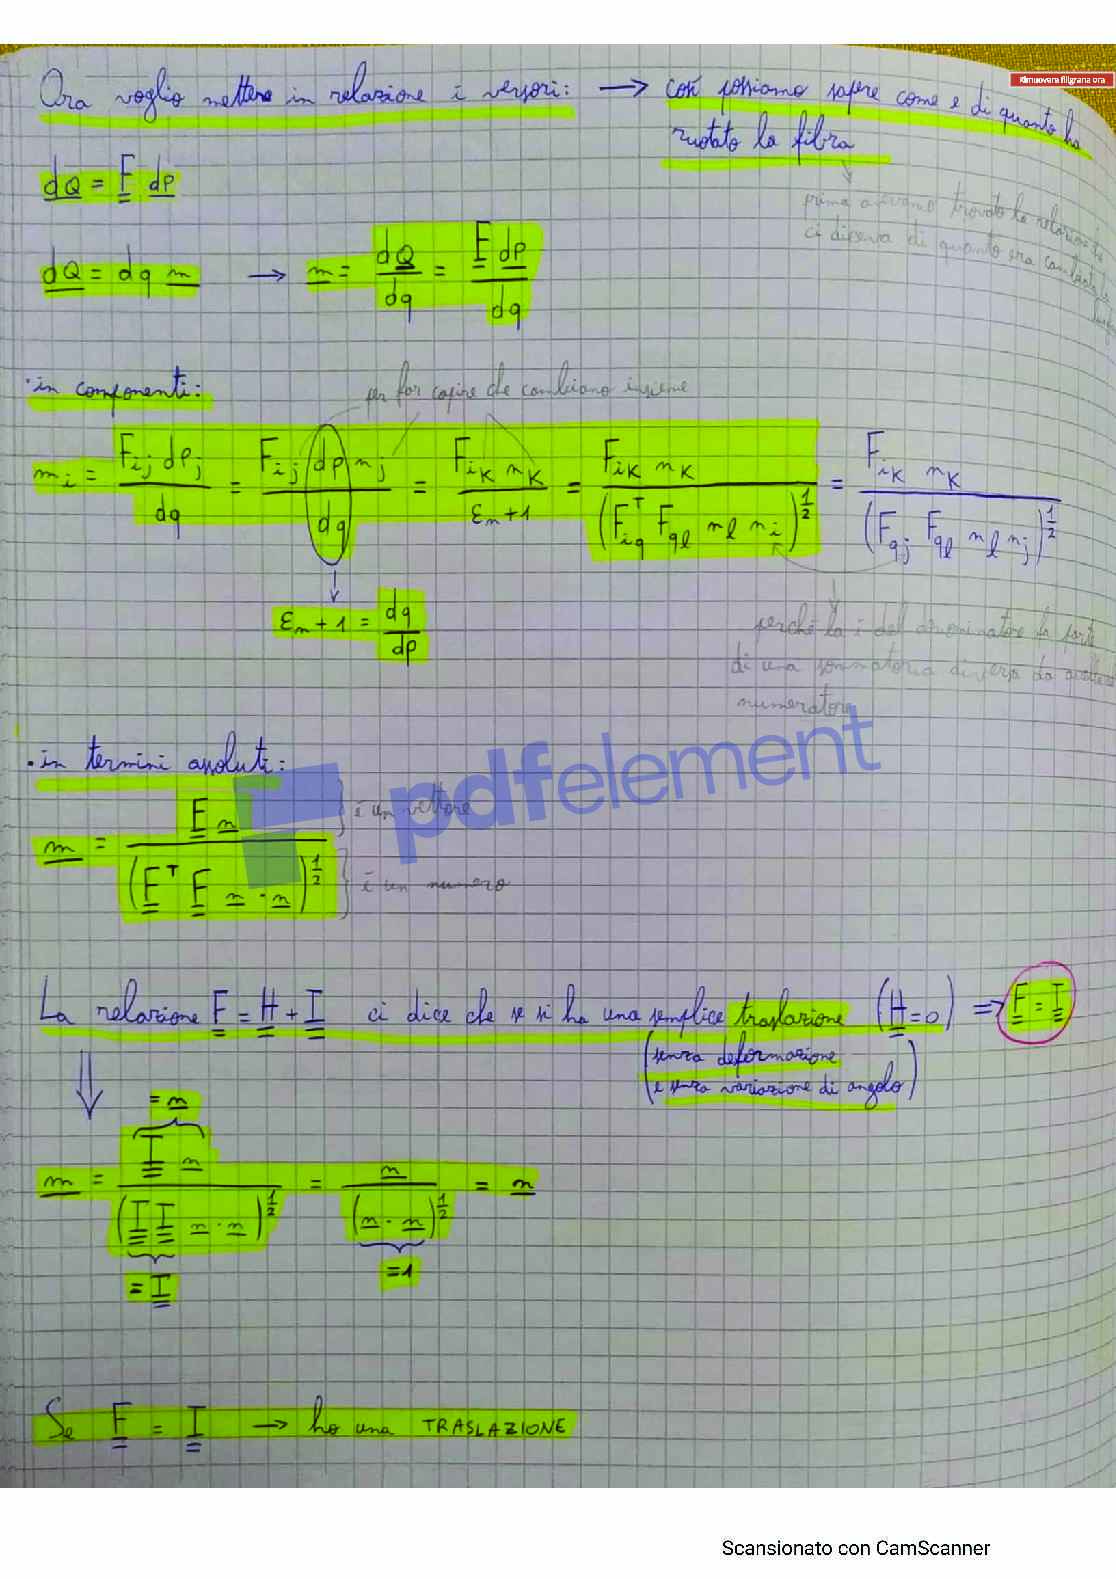 Rimuovere filigrana ora
Ora voglio mettere in relazione i versori: → così possiamo sapere come e di quanto ha
ruotato la fibra
dQ = F dp
prima avevamo trovato la relazione
ci diceva di quanto era cambiata
dQ = dq m → m = dQ/dq = F dp/dq
·in componenti:
per far capire che cambiano insieme
m_i = F_ij dp_j / dq = F_ij dp n_j / dq = F_iK n_K / (ε_n+1) = F_iK n_K / (F_iq^T F_ql n_l n_i)^1/2 = F_iK n_K / (F_qj F_ql n_l n_j)^1/2
ε_n + 1 = dq/dp
perché la i del denominatore fa parte
di una sommatoria diversa da quella
numeratore
·in termini assoluti:
pdfelement
m = F n / (F^T F n · n)^1/2
è un vettore
è un numero
La relazione F = H + I ci dice che se si ha una semplice traslazione (H=0) ⇒ F = I
(senza deformazione
e senza variazione di angolo)
= n
m = I n / (I I n · n)^1/2 = n / (n · n)^1/2 = n
= I
=1
Se F = I → ho una TRASLAZIONE
Scansionato con CamScanner